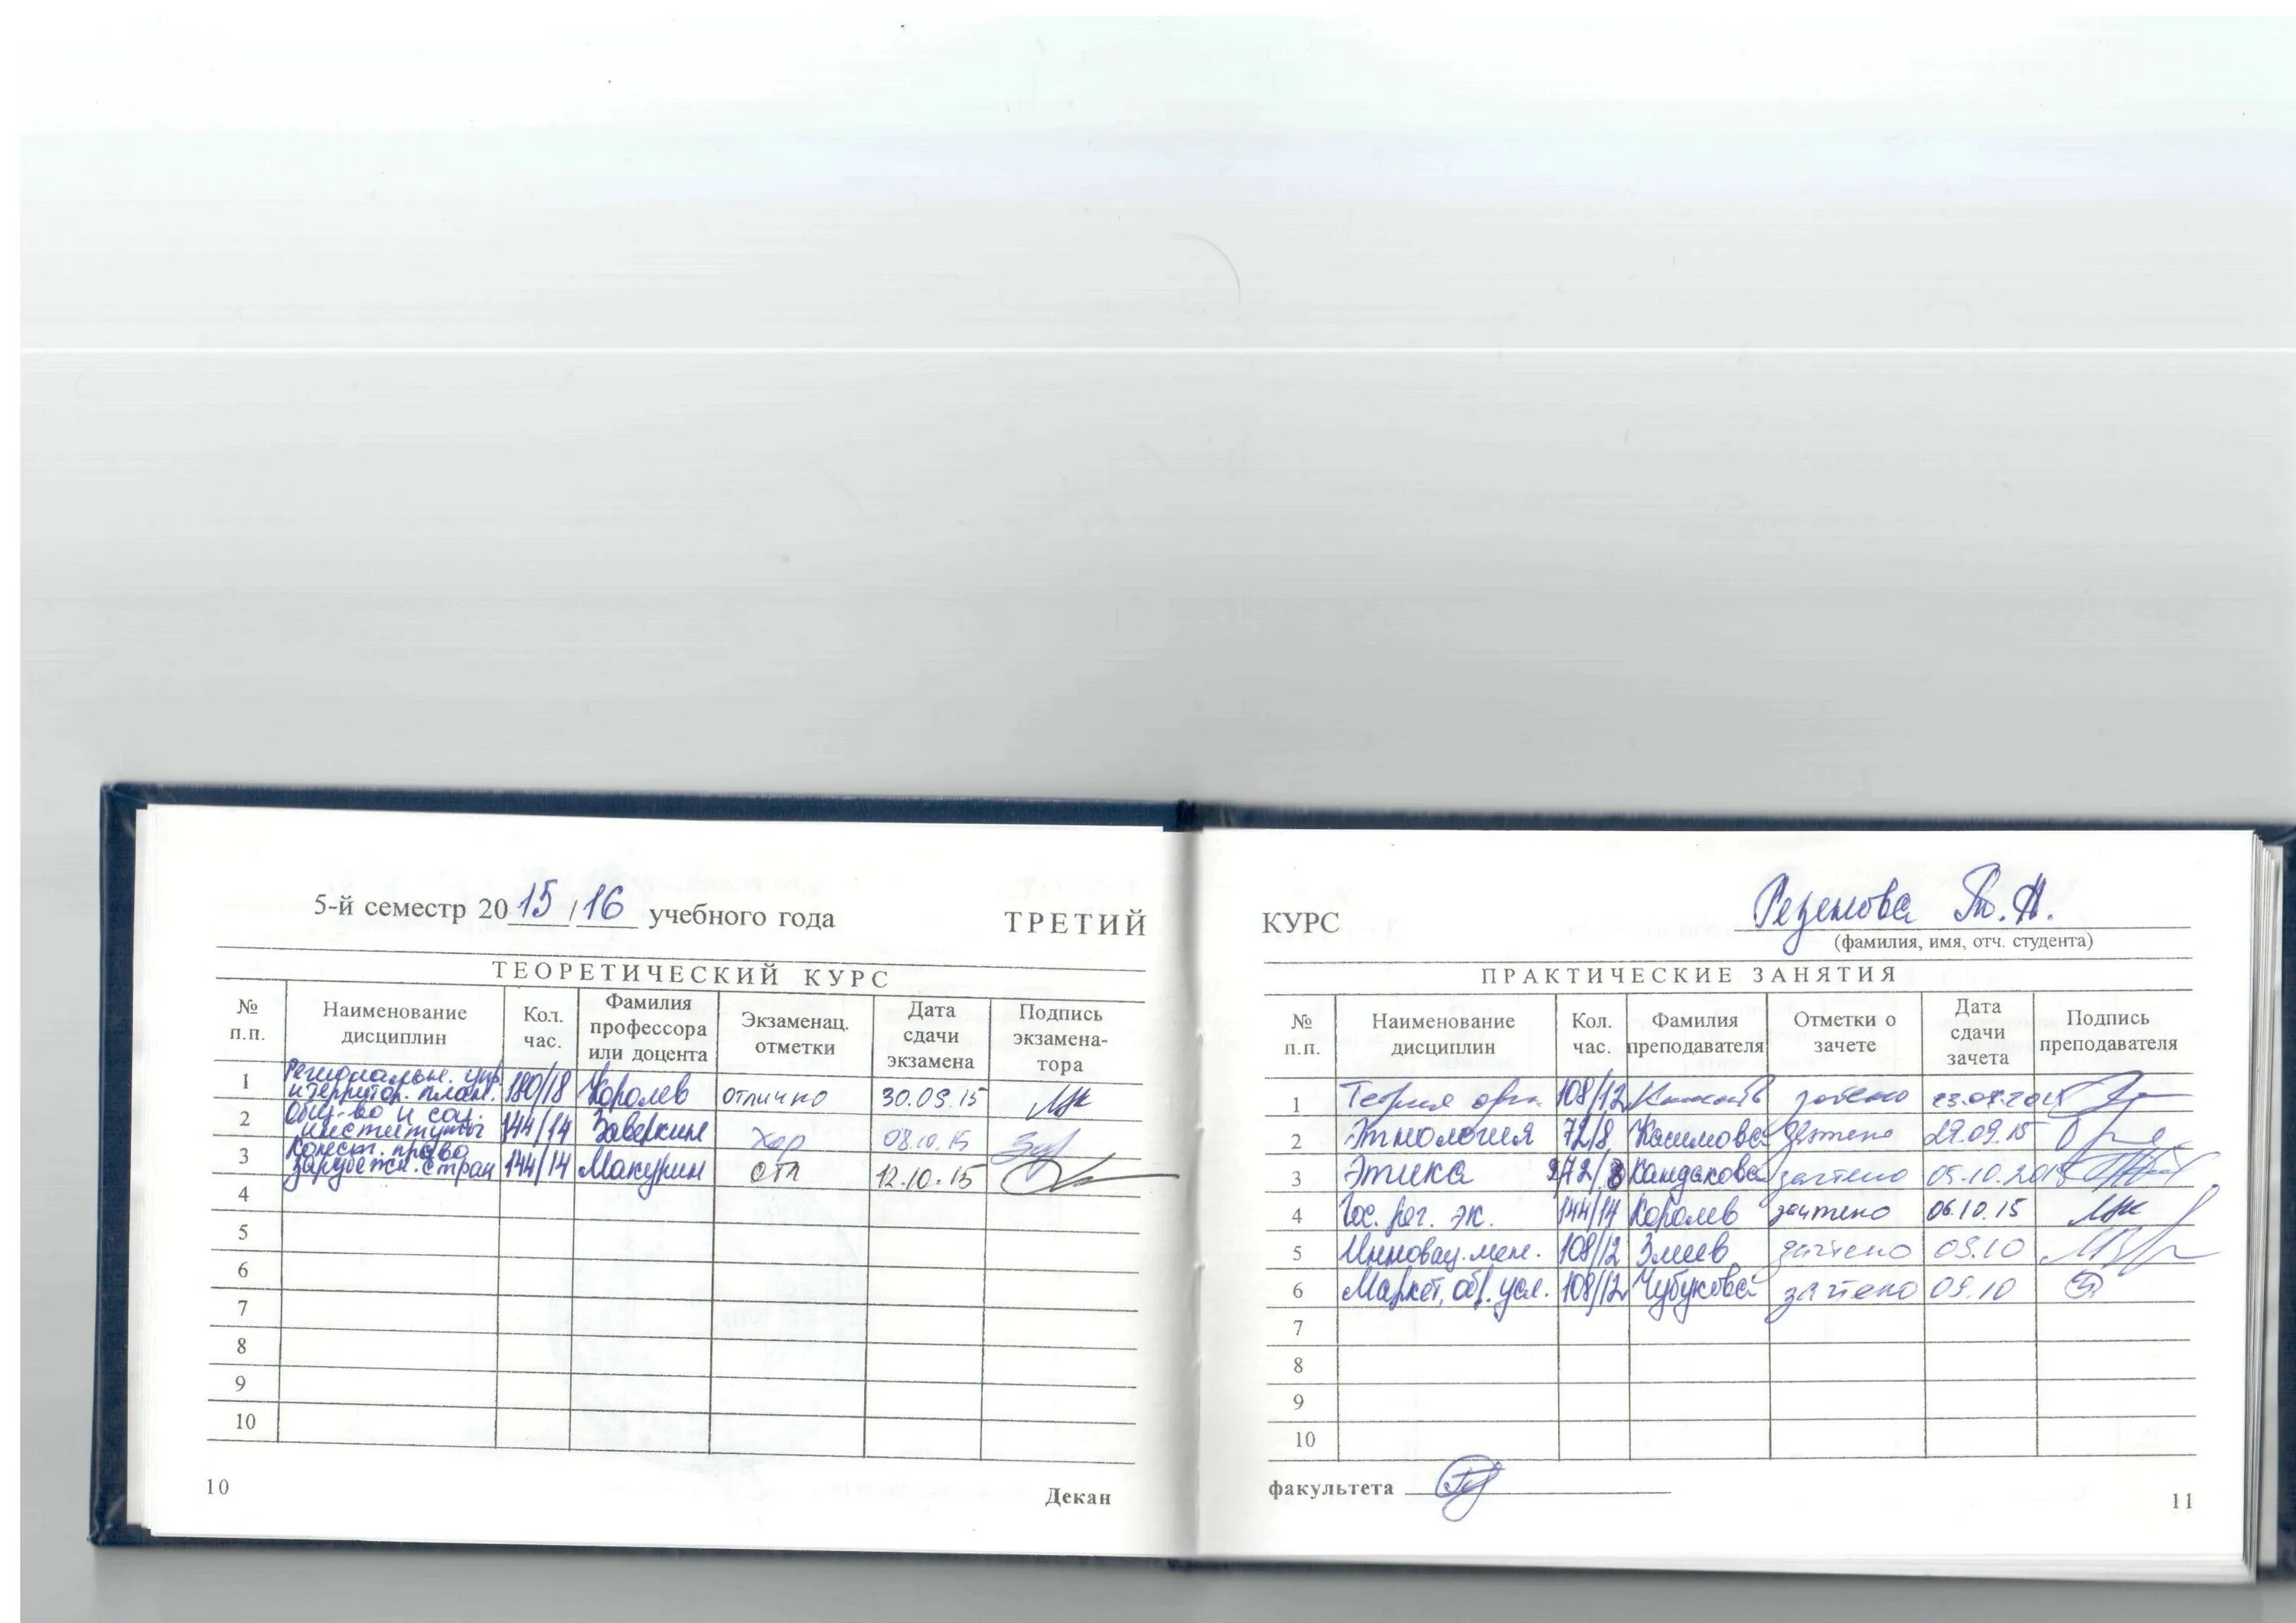 5-й семестр 2015/16 учебного года
ТРЕТИЙ
ТЕОРЕТИЧЕСКИЙ КУРС
№ п.п. Наименование дисциплин Кол. час. Фамилия профессора или доцента Экзаменац. отметки Дата сдачи экзамена Подпись экзамена-тора
1 Региональн. упр. и территор. план. 180/18 Королев отлично 30.09.15
2 Общ-во и соц. институты 144/14 Заверкин хор 08.10.15
3 Конст. право зарубежн. стран 144/14 Макурин отл 12.10.15
4
5
6
7
8
9
10
10
Декан
КУРС
Резенова Т.А.
(фамилия, имя, отч. студента)
ПРАКТИЧЕСКИЕ ЗАНЯТИЯ
№ п.п. Наименование дисциплин Кол. час. Фамилия преподавателя Отметки о зачете Дата сдачи зачета Подпись преподавателя
1 Теория орг. 108/12 зачтено
2 Этнология 72/8 Касимова зачтено 29.09.15
3 Этика 72/8 Кандакова зачтено 05.10.2015
4 Гос. рег. эк. 144/14 Королев зачтено 06.10.15
5 Инновац. мен. 108/12 Змеев зачтено 09.10
6 Маркет. обр. усл. 108/12 Чубукова зачтено 09.10
7
8
9
10
факультета
11